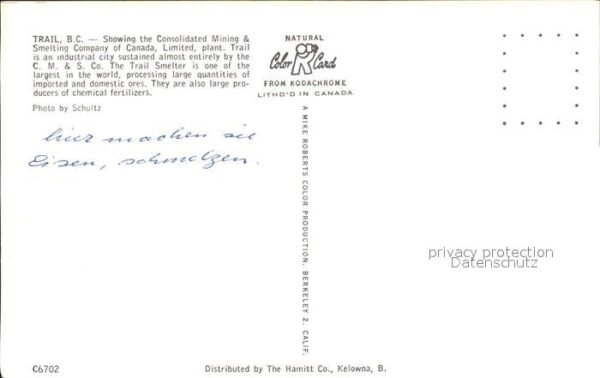 TRAIL, B.C. — Showing the Consolidated Mining &
Smelting Company of Canada, Limited, plant. Trail
is an industrial city sustained almost entirely by the
C. M. & S. Co. The Trail Smelter is one of the
largest in the world, processing large quantities of
imported and domestic ores. They are also large pro-
ducers of chemical fertilizers.
Photo by Schultz
hier machen sie
Eisen, schmelzen.
NATURAL
Color Card
FROM KODACHROME
LITHO'D IN CANADA
A MIKE ROBERTS COLOR PRODUCTION, BERKELEY 2, CALIF.
privacy protection
Datenschutz
C6702
Distributed by The Hamitt Co., Kelowna, B.